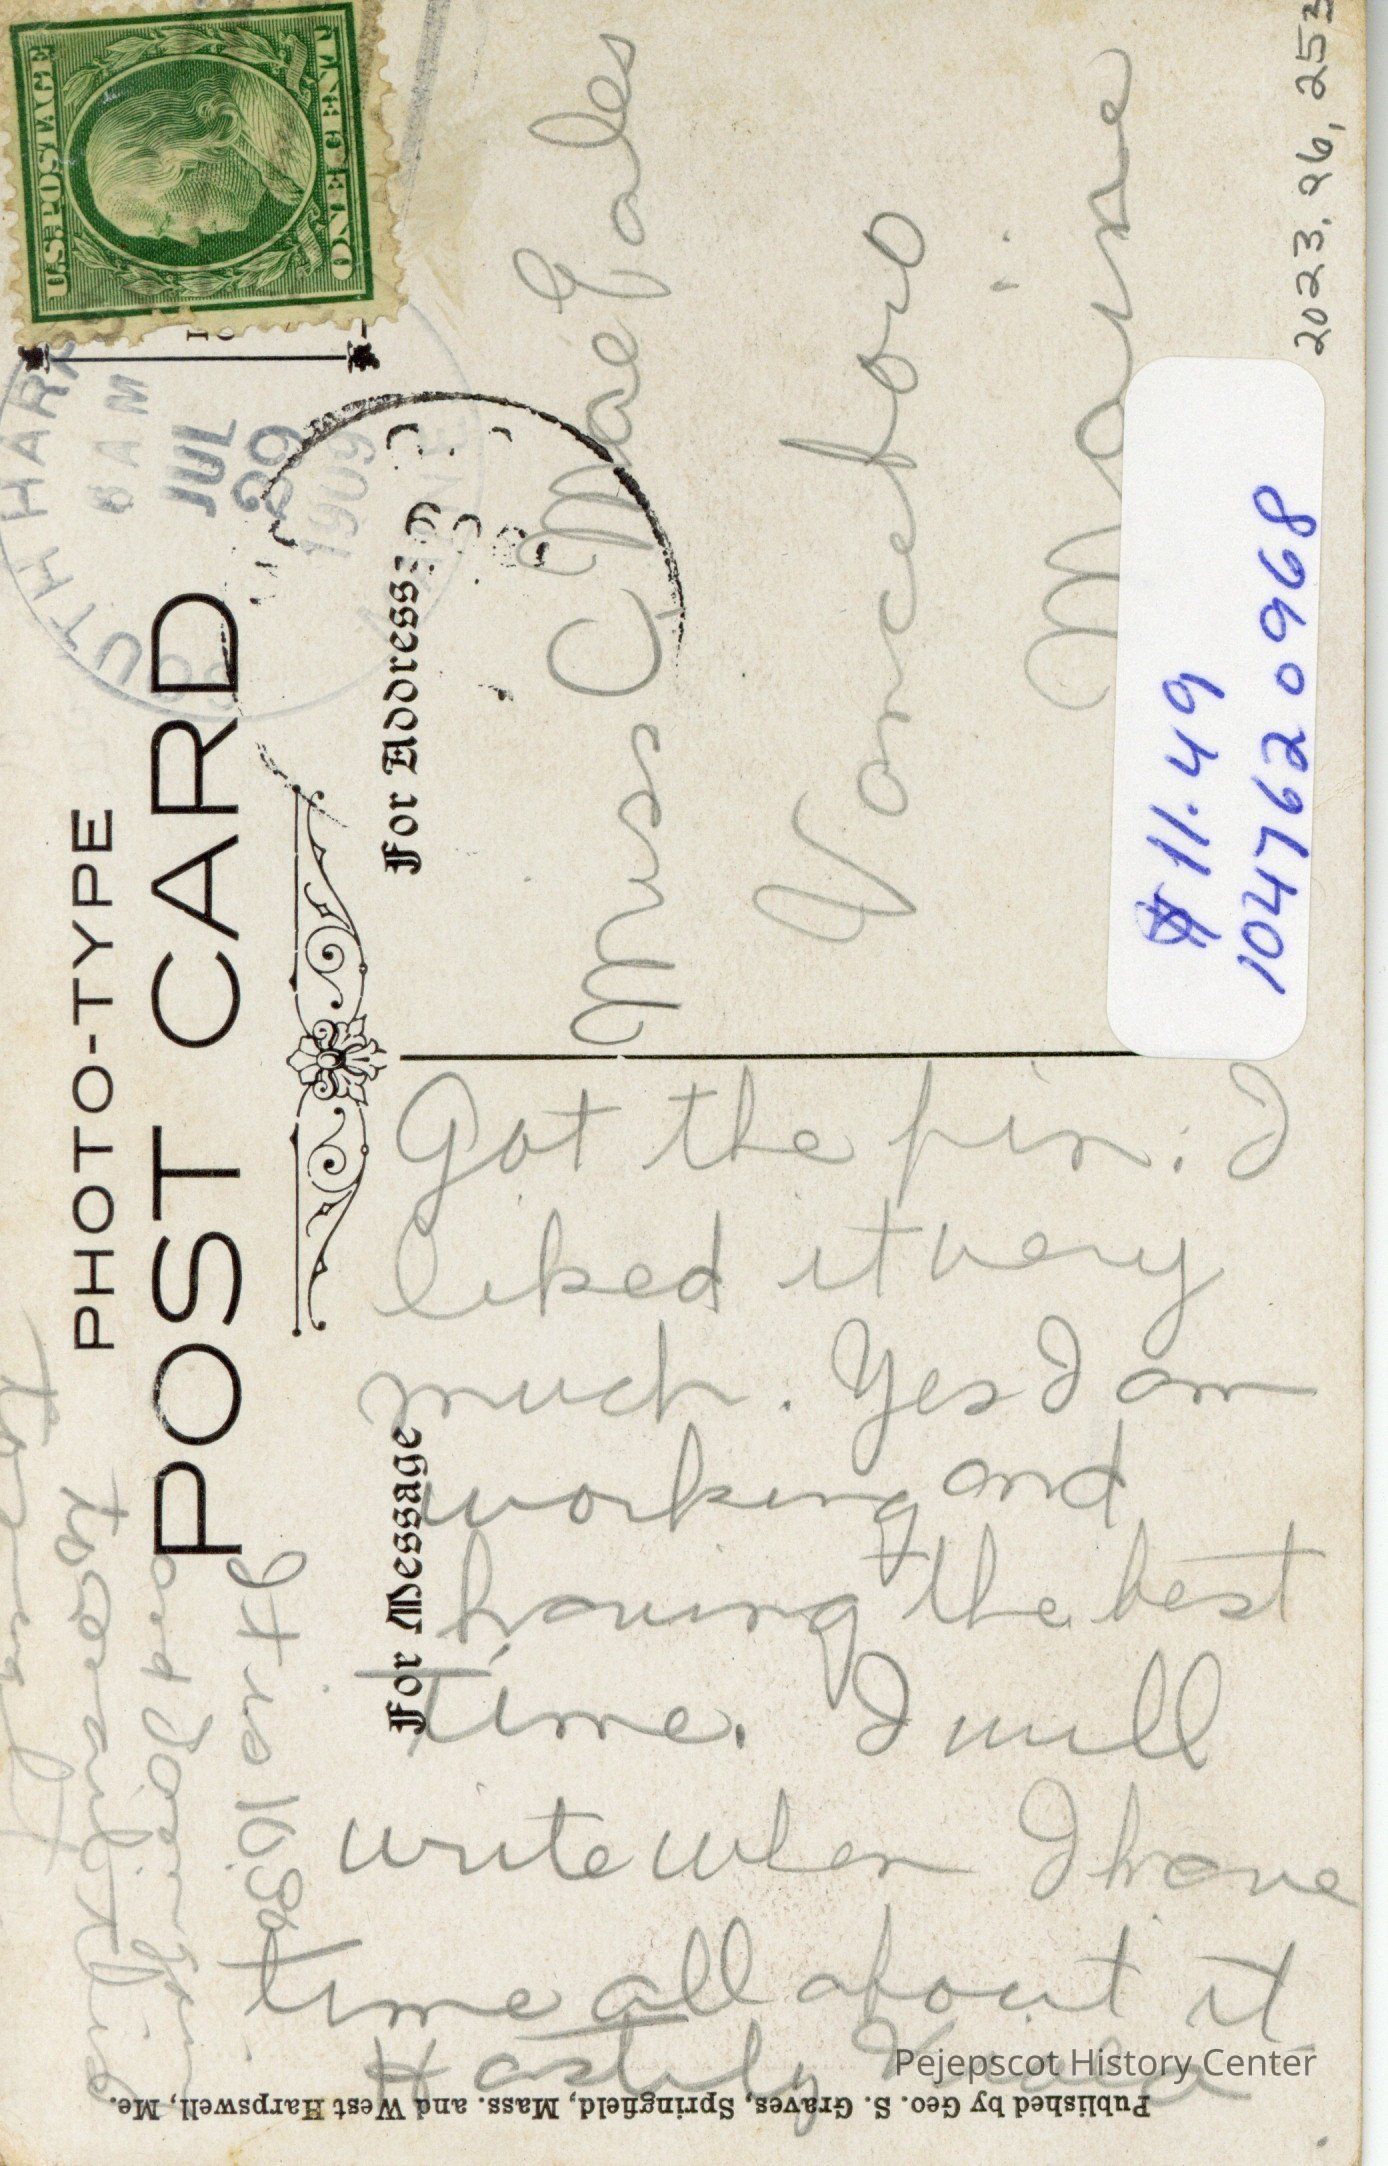 U.S. POSTAGE
ONE CENT
UTH HARP
8 AM
JUL
29
1909
MAINE
PHOTO-TYPE
POST CARD
For Address:
For Message
Miss C Mae Eales
Vanceboro
Maine
Got the pin. I
liked it very
much. Yes I am
working and
having the best
time. I will
write when I have
time all about it
Hastily
It is 10.30
and I am
to
Published by Geo. S. Graves, Springfield, Mass. and West Harpswell, Me.
$11.49
1047620968
2023.96.253
Pejepscot History Center